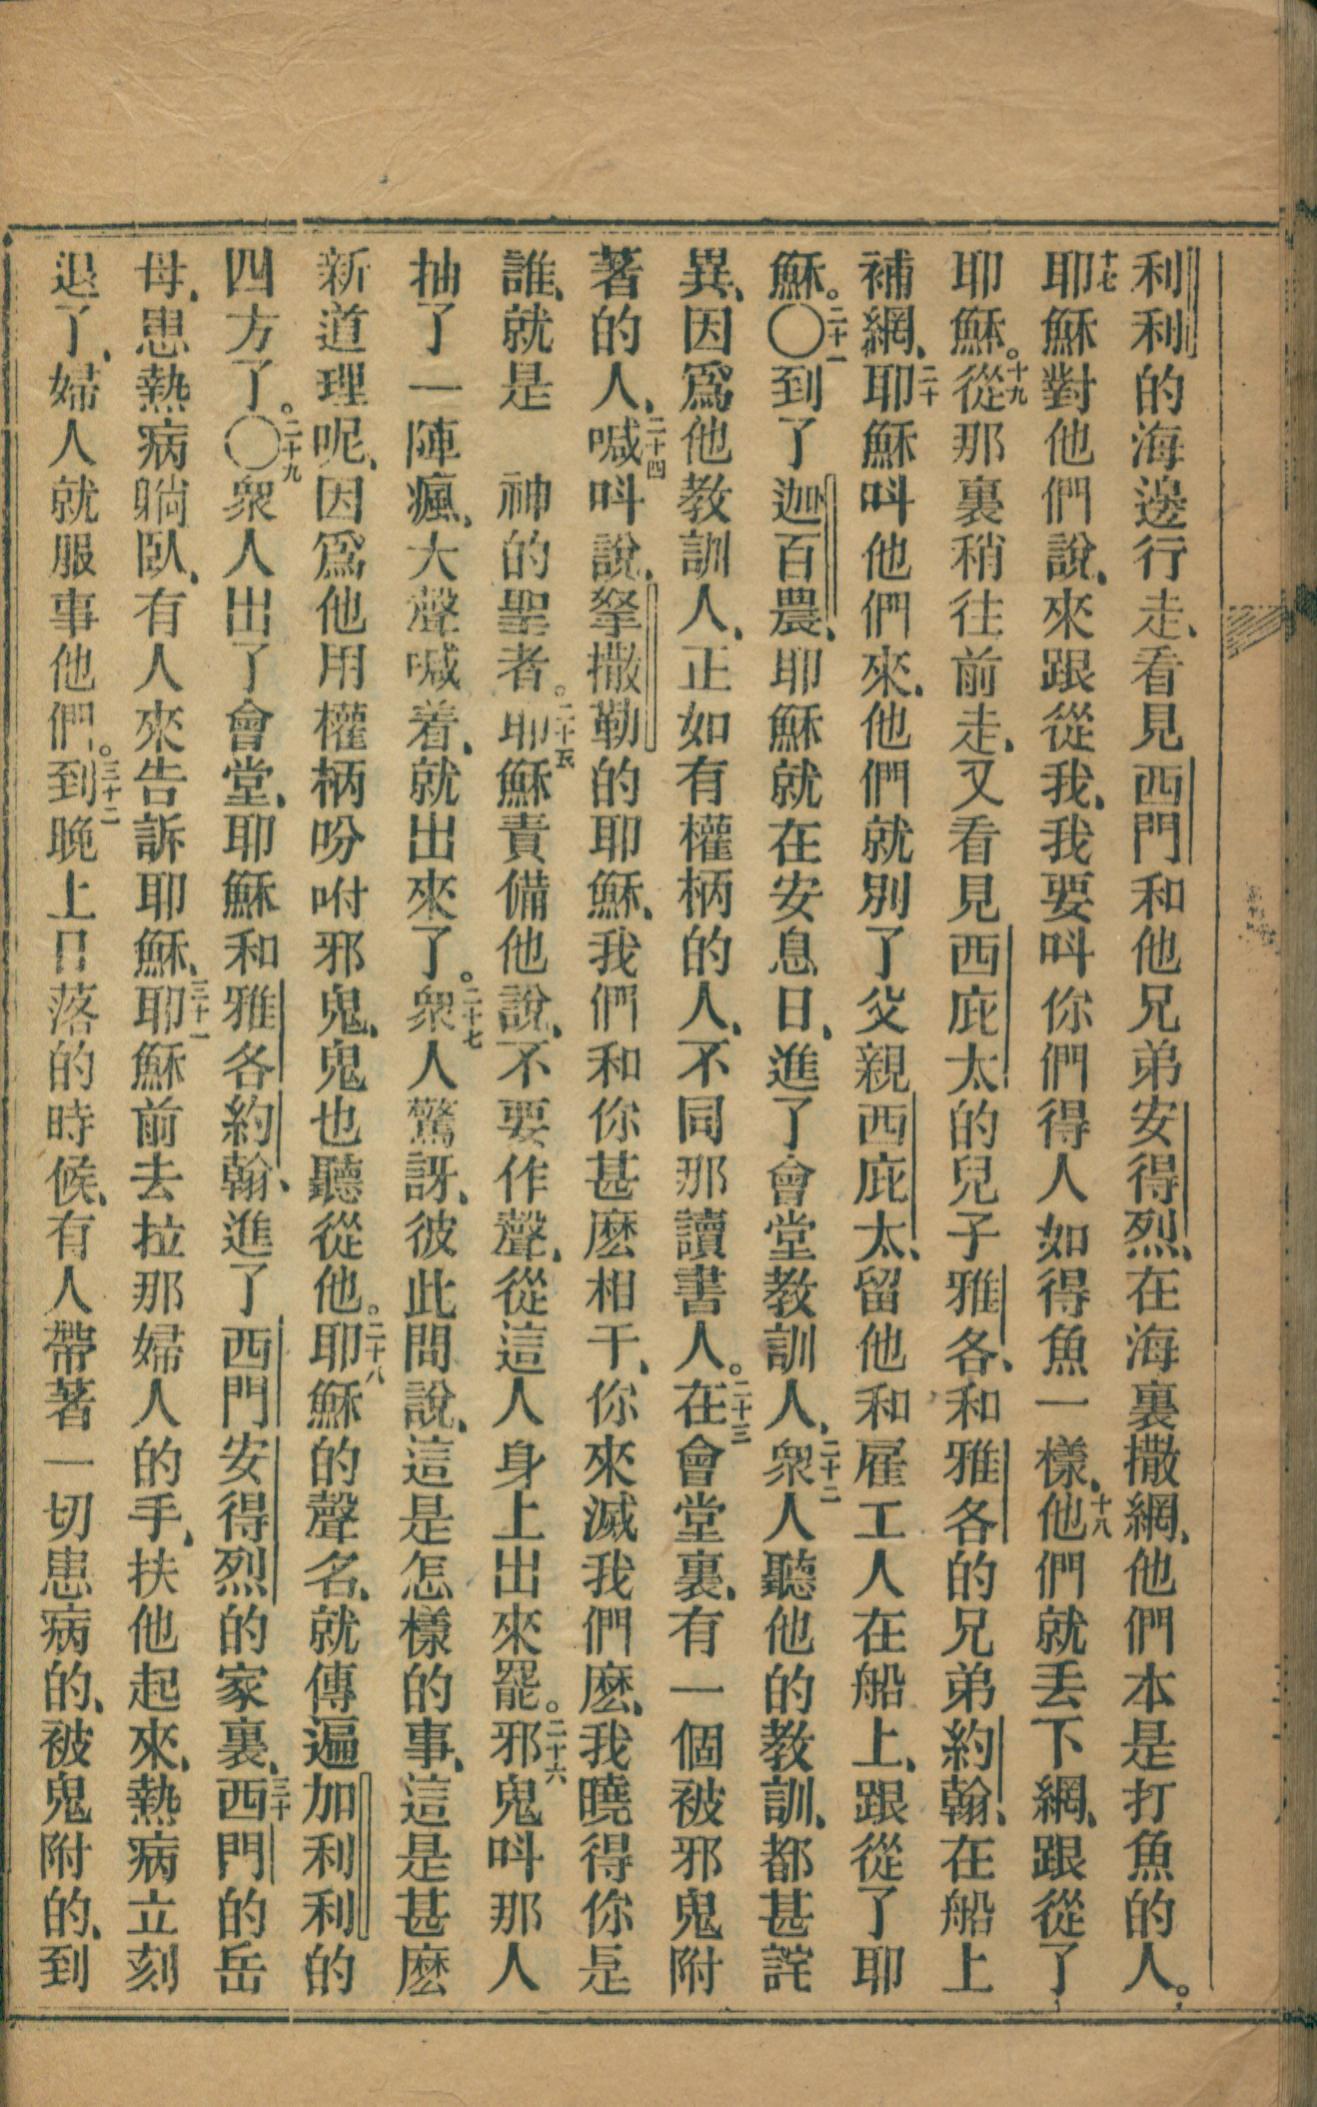 利利的海邊行走、看見西門和他兄弟安得烈、在海裏撒網、他們本是打魚的人。
十七耶穌對他們說、來跟從我、我要呌你們得人如得魚一樣、十八他們就丢下網、跟從了
耶穌。十九從那裏稍往前走、又看見西庇太的兒子雅各、和雅各的兄弟約翰、在船上
補網、二十耶穌呌他們來、他們就別了父親西庇太、留他和雇工人在船上、跟從了耶
穌。〇二十一到了迦百農、耶穌就在安息日、進了會堂教訓人、二十二衆人聽他的教訓、都甚詫
異、因爲他教訓人、正如有權柄的人、不同那讀書人。二十三在會堂裏、有一個被邪鬼附
著的人、二十四喊呌說、拏撒勒的耶穌、我們和你甚麽相干、你來滅我們麽、我曉得你是
誰、就是　神的聖者。二十五耶穌責備他說、不要作聲、從這人身上出來罷。二十六邪鬼呌那人
抽了一陣瘋、大聲喊着、就出來了。二十七衆人驚訝、彼此問說、這是怎樣的事、這是甚麽
新道理呢、因爲他用權柄吩咐邪鬼、鬼也聽從他。二十八耶穌的聲名、就傳遍加利利的
四方了。〇二十九衆人出了會堂、耶穌和雅各約翰、進了西門安得烈的家裏、三十西門的岳
母、患熱病躺臥、有人來告訴耶穌、三十一耶穌前去拉那婦人的手、扶他起來、熱病立刻
退了、婦人就服事他們。三十二到晚上日落的時候、有人帶著一切患病的、被鬼附的、到